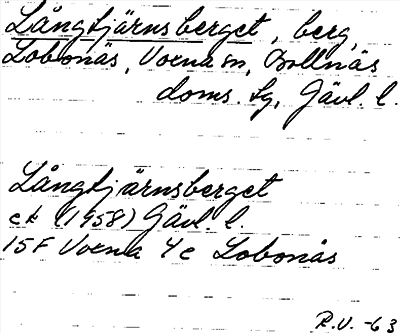 Långtjärnsberget, berg,
Lobonäs, Voxna sn, Bollnäs
doms. tg, Gävl. l.
Långtjärnsberget
ek (1958) Gävl. l.
15F Voxna 4c Lobonäs
R.V. -63